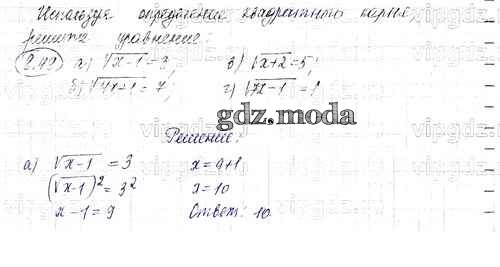 Используя определение квадратного корня
решите уравнение:
2.49 а) √x-1 = 3; в) √x+2 = 5;
б) √4x+1 = 7; г) √7x-1 = 1
gdz.moda
Решение:
а) √x-1 = 3 x = 9+1
(√x-1)² = 3² x = 10
x-1 = 9 Ответ: 10